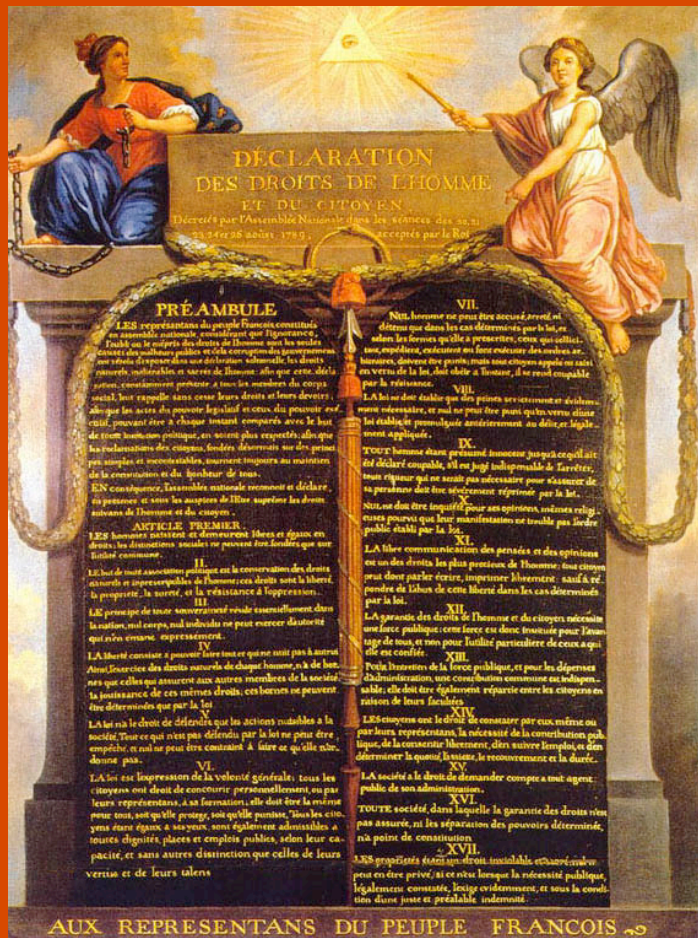 DÉCLARATION
DES DROITS DE L'HOMME
ET DU CITOYEN
Décretés par l'Assemblée Nationale dans les séances des 20, 21
23, 24 et 26 août, 1789, acceptés par le Roi
PRÉAMBULE
LES représentans du peuple François, constitués
en assemblée nationale, considérant que l'ignorance,
l'oubli ou le mépris des droits de l'homme sont les seules
causes des malheurs publics et de la corruption des gouvernemens
ont résolu d'exposer dans une déclaration solemnelle, les droits
naturels, inaliénables et sacrés de l'homme; afin que cette décla
ration, constamment présente a tous les membres du corps
social, leur rappelle sans cesse leurs droits et leurs devoirs;
afin que les actes du pouvoir legislatif et ceux du pouvoir exé
cutif, pouvant être à chaque instant comparés avec le but
de toute institution politique, en soient plus respectés; afin que
les réclamations des citoyens, fondées désormais sur des princi
pes simples et incontestables, tournent toujours au maintien
de la constitution et du bonheur de tous.
EN conséquence, l'assemblée nationale reconnoit et déclare,
en presence et sous les auspices de l'Etre suprême les droits
suivans de l'homme et du citoyen.
ARTICLE PREMIER.
LES hommes naissent et demeurent libres et égaux en
droits; les distinctions sociales ne peuvent être fondées que sur
l'utilité commune.
II.
LE but de toute association politique est la conservation des droits
naturels et imprescriptibles de l'homme; ces droits sont la liberté,
la propriété, la sureté, et la résistance à l'oppression.
III.
LE principe de toute souveraineté réside essentiellement dans
la nation, nul corps, nul individu ne peut exercer d'autorité
qui n'en émane expressement.
IV
LA liberté consiste a pouvoir faire tout ce qui ne nuit pas à autrui
Ainsi, l'exercice des droits naturels de chaque homme, n'a de bor-
nes que celles qui assurent aux autres membres de la société
la jouissance de ces mêmes droits; ces bornes ne peuvent
être déterminées que par la loi
V
LA loi n'a le droit de défendre que les actions nuisibles a la
société. Tout ce qui n'est pas défendu par la loi ne peut être
empêché, et nul ne peut être contraint à faire ce qu'elle n'or-
donne pas.
VI.
LA loi est l'expression de la volonté générale; tous les
citoyens ont droit de concourir personnellement, ou par
leurs représentans, à sa formation; elle doit être la même
pour tous, soit qu'elle protege, soit qu'elle punisse. Tous les cito-
yens étant égaux à ses yeux, sont également admissibles à
toutes dignités, places et emplois publics, selon leur ca-
pacité, et sans autres distinction que celles de leurs
vertus et de leurs talens
VII.
NUL homme ne peut être accusé, arreté, ni
détenu que dans les cas déterminés par la loi, et
selon les formes qu'elle à prescrites, ceux qui sollici-
tent, expédient, exécutent ou font exécuter des ordres ar-
bitraires, doivent être punis; mais tout citoyen appelé ou saisi
en vertu de la loi, doit obéir a l'instant, il se rend coupable
par la résistance.
VIII.
LA loi ne doit établir que des peines strictement et évidem-
ment nécessaire, et nul ne peut être puni qu'en vertu d'une
loi établie et promulguée antérierement au délit, et légale-
ment appliquée.
IX.
TOUT homme étant présumé innocent jusqu'à ce qu'il ait
été déclaré coupable, s'il est jugé indispensable de l'arrêter,
toute rigueur qui ne serait pas nécessaire pour s'assurer de
sa personne doit être sévèrement réprimée par la loi.
X.
NUL ne doit être inquiété pour ses opinions, mêmes religi
euses pourvu que leur manifestation ne trouble pas l'ordre
public établi par la loi.
XI.
LA libre communication des pensées et des opinions
est un des droits les plus precieux de l'homme; tout citoyen
peut dont parler écrire, imprimer librement; sauf à ré
pondre de l'abus de cette liberté dans les cas déterminés
par la loi.
XII.
LA garantie des droits de l'homme et du citoyen nécessite
une force publique; cette force est donc instituée pour l'avan
tage de tous, et non pour l'utilité particulière de ceux a qui
elle est confiée.
XIII.
Pour l'entretien de la force publique, et pour les dépenses
d'administration, une contribution commune est indispen-
sable; elle doit être également répartie entre les citoyens en
raison de leurs facultées
XIV.
LES citoyens ont le droit de constater par eux même ou
par leurs représentans, la nécessité de la contribution pub-
lique, de la consentir librement, d'en suivre l'emploi, et d'en
déterminer la quotité, l'assiette, le recouvrement et la durée.
XV.
LA société a le droit de demander compte a tout agent
public de son administration.
XVI.
TOUTE société, dans laquelle la garantie des droits n'est
pas assurée, ni les séparation des pouvoirs déterminée,
n'a point de constitution
XVII.
LES propriétés étant un droit inviolable et sacré, nul ne
peut en être privé, si ce n'est lorsque la nécessité publique,
légalement constatée, l'exige evidemment, et sous la condi-
tion d'une juste et préalable indemnité.
AUX REPRESENTANS DU PEUPLE FRANCOIS